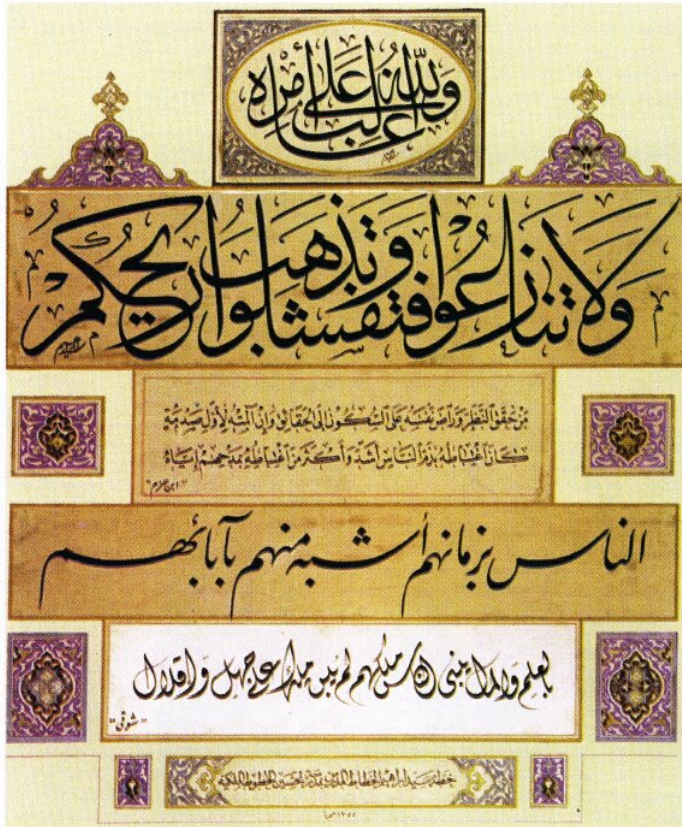 والله غالب على أمره
ولا تنازعوا فتفشلوا وتذهب ريحكم
من حقق النظر وراض نفسه على السكون إلى الحقائق وإن آلمته لأول صدمة
كان اغتباطه بذم الناس أشد وأكثر من اغتباطه بمدحهم إياه
"ابن حزم"
الناس بزمانهم أشبه منهم بآبائهم
بالعلم والمال يبني الناس ملكهم لم يبن ملك على جهل وإقلال
"شوقي"
خطه سيد إبراهيم الخطاط المدرس بمدرسة تحسين الخطوط الملكية